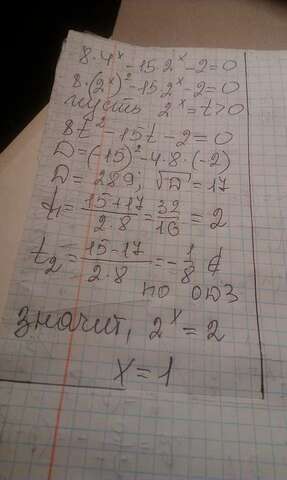 8·4ˣ-15·2ˣ-2=0
8·(2ˣ)²-15·2ˣ-2=0
пусть 2ˣ=t>0
8t²-15t-2=0
D=(-15)²-4·8·(-2)
D=289; √D=17
t₁=(15+17)/(2·8)=32/16=2
t₂=(15-17)/(2·8)=-1/8 ∉
по ОДЗ
значит, 2ˣ=2
x=1